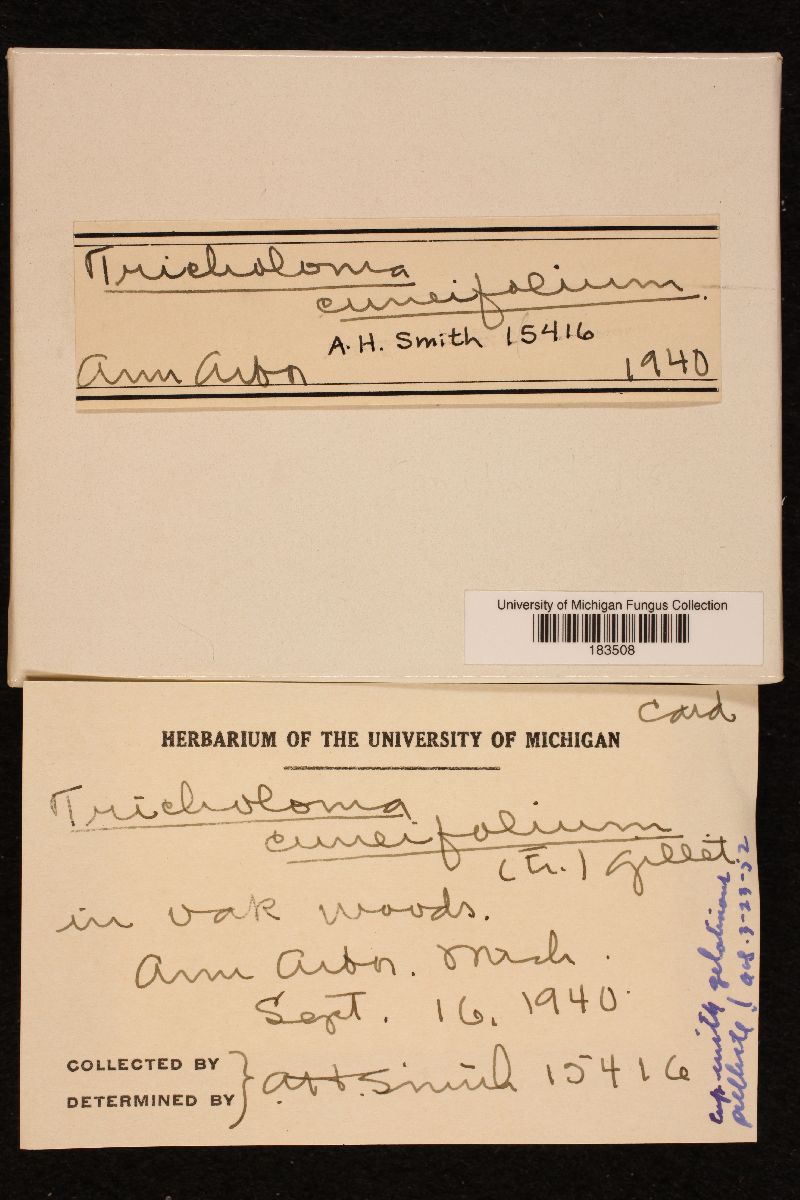 Tricholoma
cuneifolium.
A. H. Smith 15416
Ann Arbor 1940
University of Michigan Fungus Collection
183508
Card
HERBARIUM OF THE UNIVERSITY OF MICHIGAN
Tricholoma
cuneifolium
(Fr.) Gillet
in oak woods.
Ann Arbor. Mich.
Sept. 16, 1940
COLLECTED BY
DETERMINED BY
A.H. Smith 15416
with gelatinous
pellicle!